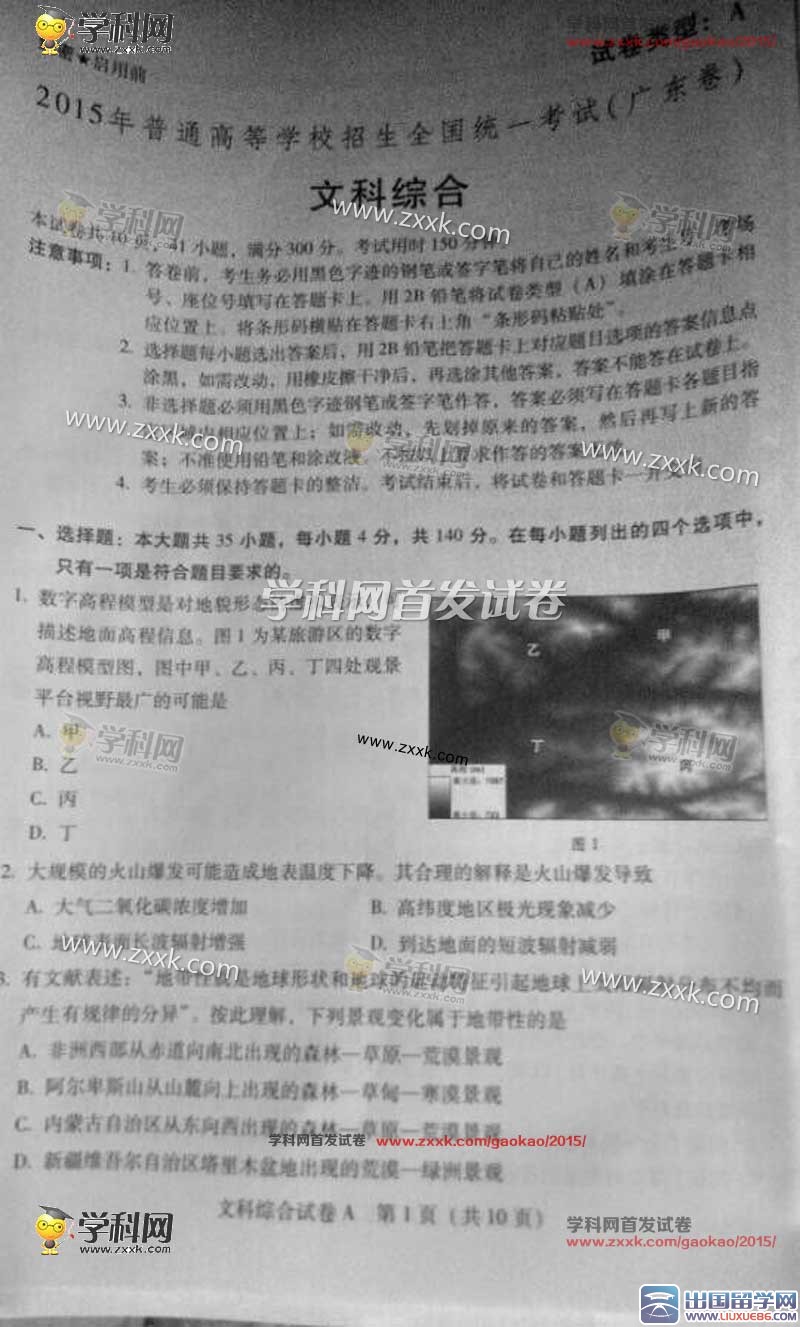 学科网
www.zxxk.com
学科网首发试卷
www.zxxk.com/gaokao/2015/
★启用前
试卷类型：A
2015年普通高等学校招生全国统一考试（广东卷）
文科综合
学科网
zxxk.com
www.zxxk.com
本试卷共10页，41小题，满分300分。考试用时150分钟。
注意事项：1. 答卷前，考生务必用黑色字迹的钢笔或签字笔将自己的姓名和考生号、考场
号、座位号填写在答题卡上。用2B铅笔将试卷类型（A）填涂在答题卡相
应位置上。将条形码横贴在答题卡右上角“条形码粘贴处”。
2. 选择题每小题选出答案后，用2B铅笔把答题卡上对应题目选项的答案信息点
涂黑，如需改动，用橡皮擦干净后，再选涂其他答案，答案不能答在试卷上。
3. 非选择题必须用黑色字迹钢笔或签字笔作答，答案必须写在答题卡各题目指
相应位置上；如需改动，先划掉原来的答案，然后再写上新的答
案；不准使用铅笔和涂改液。不按以上要求作答的答案
4. 考生必须保持答题卡的整洁。考试结束后，将试卷和答题卡一并交
www.zxxk.com
学科网
zxxk.com
www.zxxk.com
一、选择题：本大题共35小题，每小题4分，共140分。在每小题列出的四个选项中，
只有一项是符合题目要求的。
学科网首发试卷
1. 数字高程模型是对地貌形态
描述地面高程信息。图1为某旅游区的数字
高程模型图，图中甲、乙、丙、丁四处观景
平台视野最广的可能是
A. 甲
B. 乙
C. 丙
D. 丁
乙
甲
丁
丙
图1
学科网
zxxk.com
www.zxxk.com
学科网
zxxk.com
2. 大规模的火山爆发可能造成地表温度下降。其合理的解释是火山爆发导致
A. 大气二氧化碳浓度增加
B. 高纬度地区极光现象减少
C. 地球表面长波辐射增强
D. 到达地面的短波辐射减弱
www.zxxk.com
学科网
zxxk.com
www.zxxk.com
3. 有文献表述：“地带性就是地球形状和地球的 引起地球上 不均而
产生有规律的分异”。按此理解，下列景观变化属于地带性的是
A. 非洲西部从赤道向南北出现的森林—草原—荒漠景观
B. 阿尔卑斯山从山麓向上出现的森林—草甸—寒漠景观
C. 内蒙古自治区从东向西出现的森林—草原—荒漠景观
学科网首发试卷 www.zxxk.com/gaokao/2015/
D. 新疆维吾尔自治区塔里木盆地出现的荒漠—绿洲景观
文科综合试卷A 第1页（共10页）
学科网
www.zxxk.com
学科网首发试卷
www.zxxk.com/gaokao/2015/
出国留学网
www.liuxue86.com